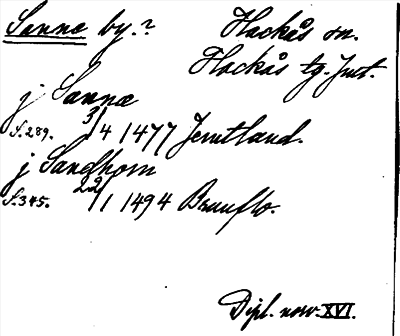 Sanne by.? Hackås sn.
Hackås tg. Jmt.
j Sannæ
S. 289. 3/4 1477 Jemtland.
j Sandhom
S. 345. 22/1 1494 Brunflo.
Dipl. norv. XVI.